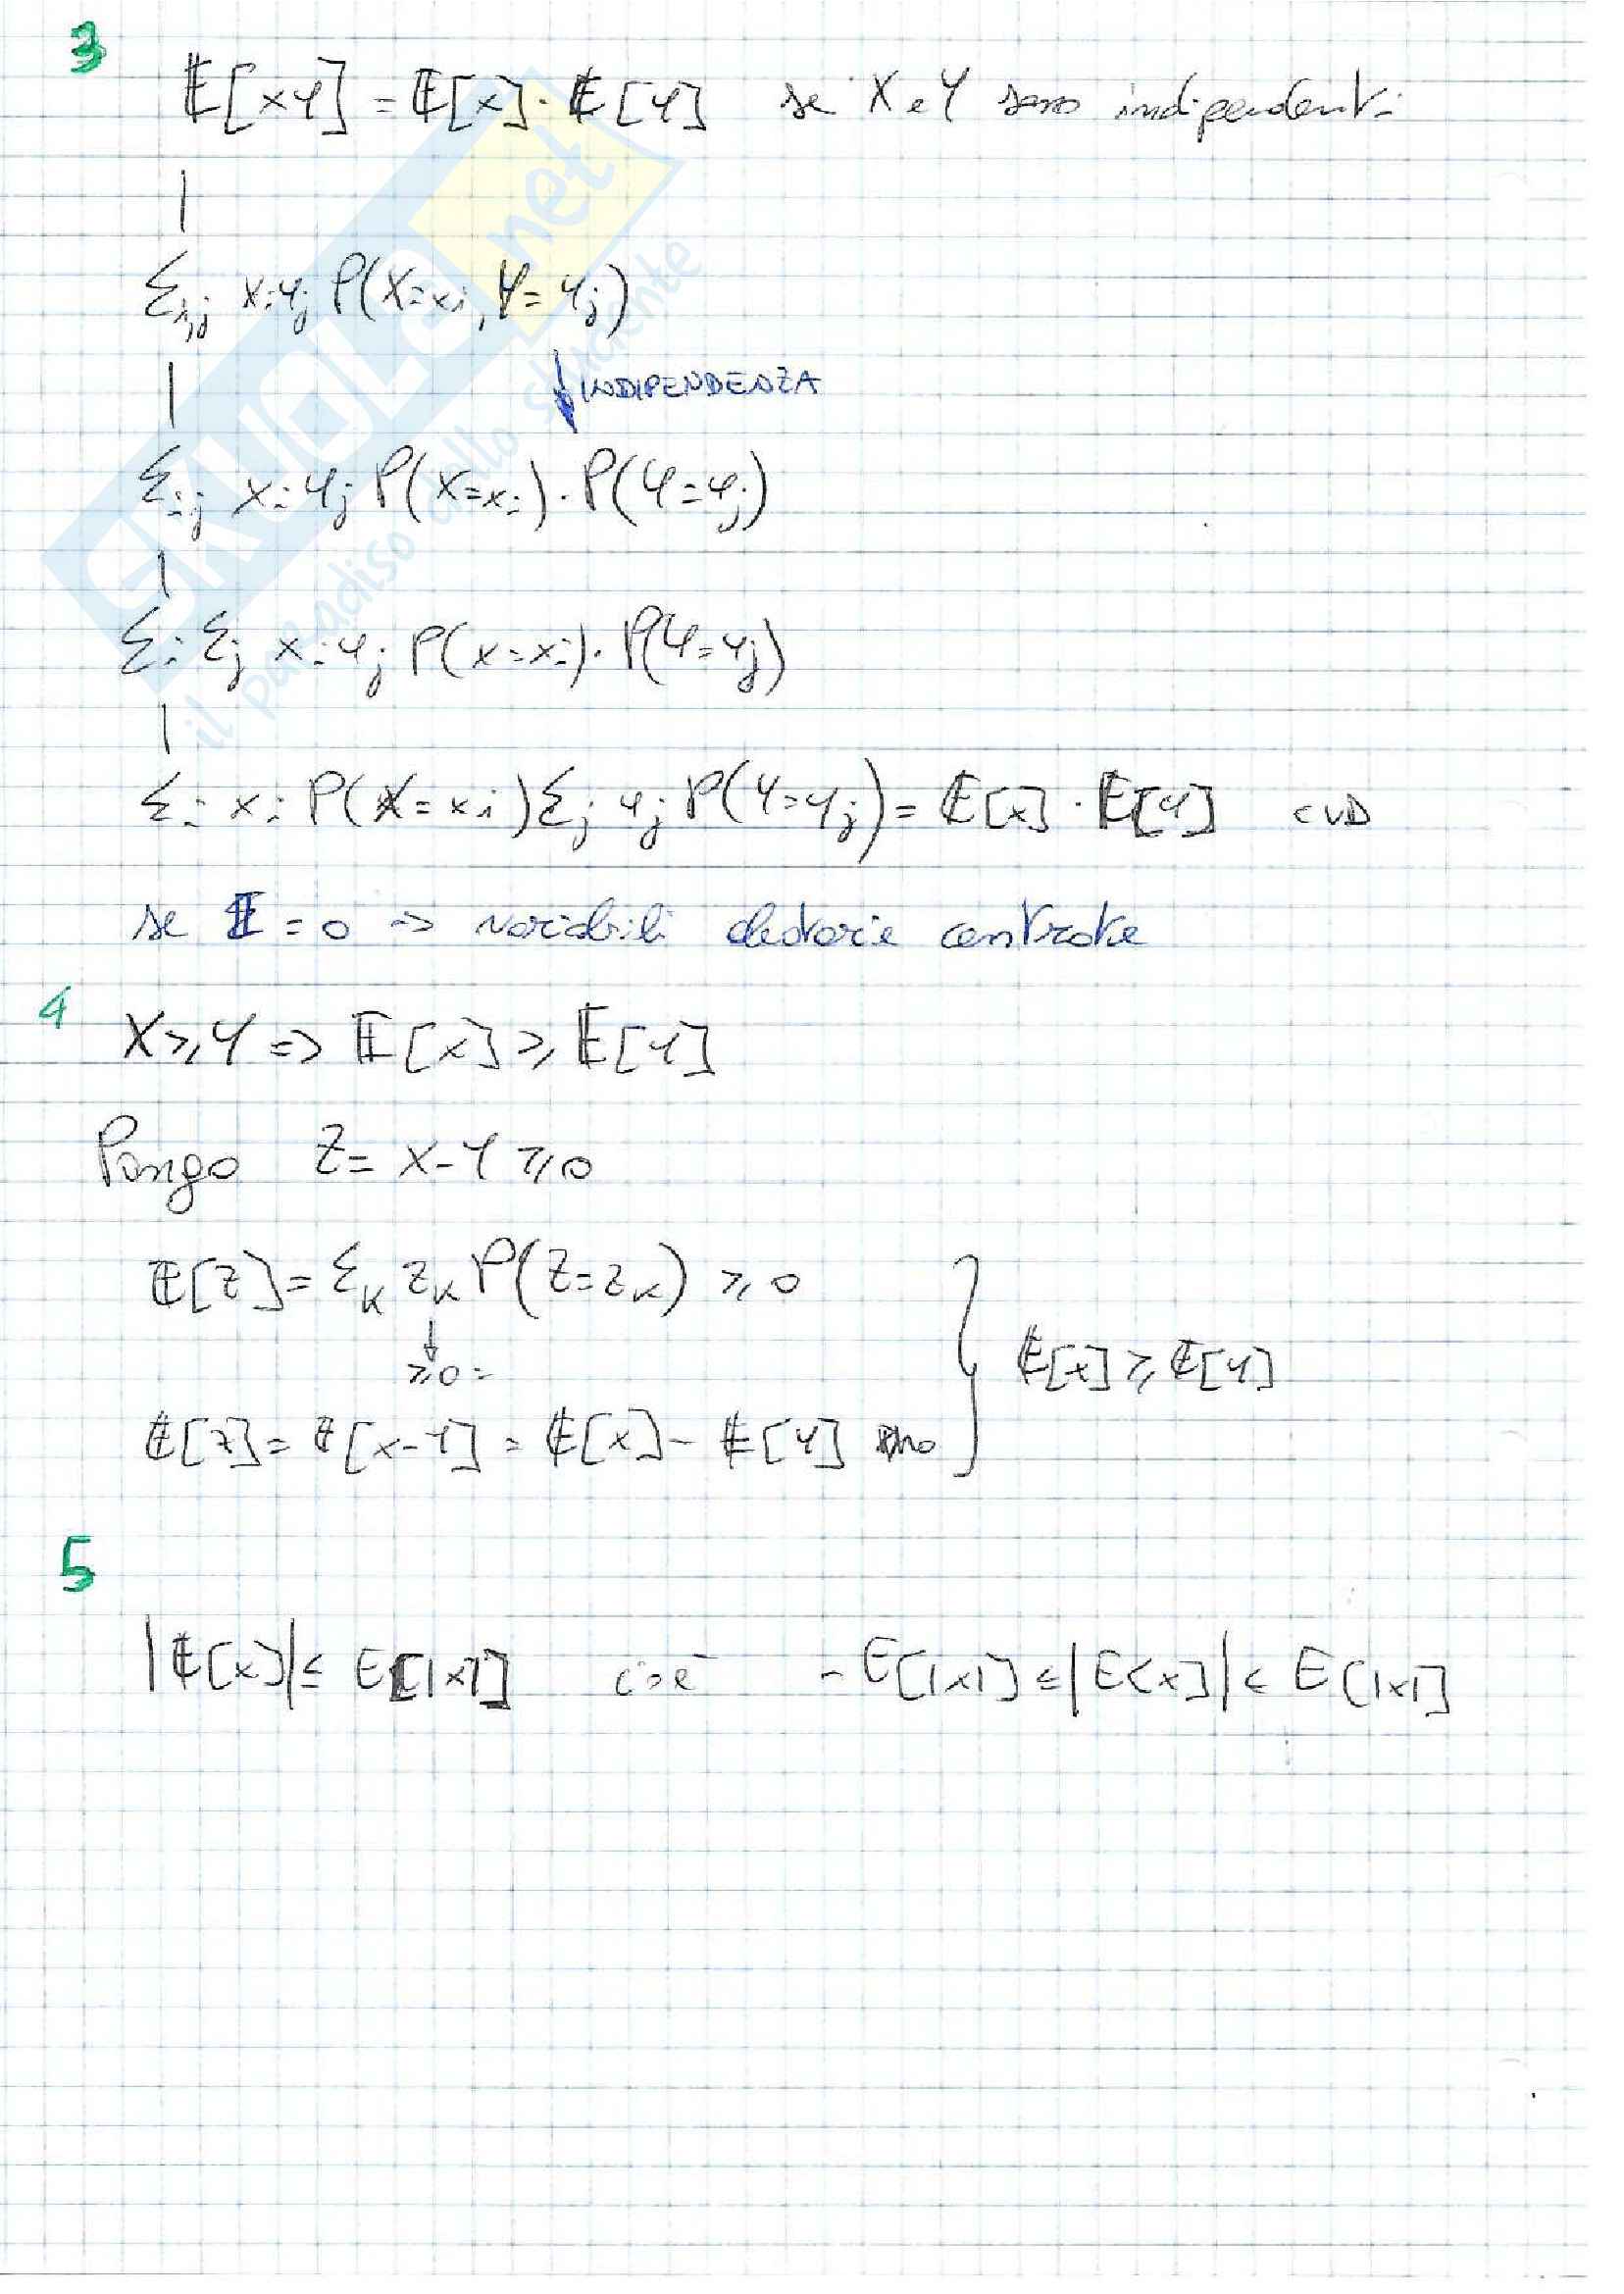 3
𝔼[XY] = 𝔼[X]·𝔼[Y] se X e Y sono indipendenti
|
Σi,j xi yj P(X=xi, Y=yj)
| ↓ INDIPENDENZA
Σi,j xi yj P(X=xi)·P(Y=yj)
|
Σi Σj xi yj P(X=xi)·P(Y=yj)
|
Σi xi P(X=xi) Σj yj P(Y=yj) = 𝔼[X]·𝔼[Y] CVD
se 𝔼=0 => variabili aleatorie centrate
4
X≥Y => 𝔼[X] ≥ 𝔼[Y]
Pongo Z = X-Y ≥0
𝔼[Z] = Σk zk P(Z=zk) ≥ 0
↓
≥0
𝔼[X] ≥ 𝔼[Y]
𝔼[Z] = 𝔼[X-Y] = 𝔼[X] - 𝔼[Y]
5
|𝔼[X]| ≤ E[|X|] cioè -E[|X|] ≤ |E[X]| ≤ E[|X|]
SKUOLA.net
il paradiso dello studente